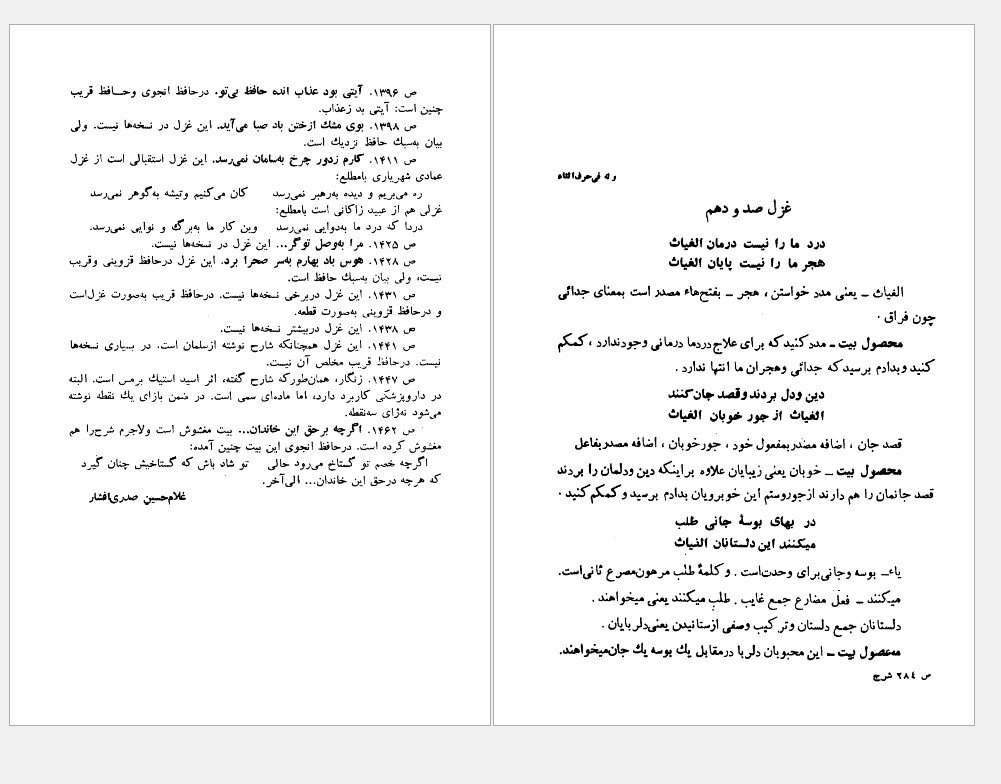 وله فی حرف الثاء
غزل صد و دهم
درد ما را نیست درمان الغیاث
هجر ما را نیست پایان الغیاث
الغیاث ـ یعنی مدد خواستن ، هجر ـ بفتح‌هاء مصدر است بمعنای جدائی
چون فراق .
محصول بیت ـ مدد کنید که برای علاج دردما درمانی وجود ندارد ، کمکم
کنید و بدادم برسید که جدائی وهجران ما انتها ندارد .
دین ودل بردند وقصد جان کنند
الغیاث از جور خوبان الغیاث
قصد جان ، اضافه مصدر بمفعول خود ، جورخوبان ، اضافه مصدر بفاعل
محصول بیت ـ خوبان یعنی زیبایان علاوه براینکه دین ودلمان را بردند
قصد جانمان را هم دارند ازجوروستم این خوبرویان بدادم برسید و کمکم کنید .
در بهای بوسهٔ جانی طلب
میکنند این دلستانان الغیاث
یاء ـ بوسه وجانی برای وحدت‌است . و کلمهٔ طلب مرهون مصرع ثانی است.
میکنند ـ فعل مضارع جمع غایب . طلب میکنند یعنی میخواهند .
دلستانان جمع دلستان وتر کیب وصفی ازستانیدن یعنی دلربایان .
محصول بیت ـ این محبوبان دلربا درمقابل یك بوسه یك جان میخواهند.
ص ۲۸٤ شرح
ص ۱۳۹۶. آیتی بود عذاب انده حافظ بی‌تو. درحافظ انجوی وحـافظ قریب
چنین است: آیتی بد زعذاب.
ص ۱۳۹۸. بوی مشك ازختن باد صبا می‌آید. این غزل در نسخه‌ها نیست. ولی
بیان به‌سبك حافظ نزدیك است.
ص ۱۴۱۱. کارم زدور چرخ به‌سامان نمی‌رسد. این غزل استقبالی است از غزل
عمادی شهریاری بامطلع:
ره می‌بریم و دیده به‌رهبر نمی‌رسد کان می‌کنیم وتیشه به‌گوهر نمی‌رسد
غزلی هم از عبید زاکانی است بامطلع:
دردا که درد ما به‌دوایی نمی‌رسد وین کار ما به‌برگ و نوایی نمی‌رسد.
ص ۱۴۲۵. مرا به‌وصل توگر... این غزل در نسخه‌ها نیست.
ص ۱۴۲۸. هوس باد بهارم به‌سر صحرا برد. این غزل درحافظ قزوینی وقریب
نیست، ولی بیان به‌سبك حافظ است.
ص ۱۴۳۱. این غزل دربرخی نسخه‌ها نیست. درحافظ قریب به‌صورت غزل‌است
و درحافظ قزوینی به‌صورت قطعه.
ص ۱۴۳۸. این غزل دربیشتر نسخه‌ها نیست.
ص ۱۴۴۱. این غزل همچنانکه شارح نوشته ازسلمان است. در بسیاری نسخه‌ها
نیست. درحافظ قریب مخلص آن نیست.
ص ۱۴۴۷. زنگار، همان‌طورکه شارح گفته، اثر اسید استیك برمس است. البته
در داروپزشکی کاربرد دارد، اما ماده‌ای سمی است. در ضمن بازای یك نقطه نوشته
می‌شود نه‌ژای سه‌نقطه.
ص ۱۴۶۲. اگرچه برحق این خاندان... بیت مغشوش است ولاجرم شرح‌را هم
مغشوش کرده است. درحافظ انجوی این بیت چنین آمده:
اگرچه خصم تو گستاخ می‌رود حالی تو شاد باش که گستاخیش چنان گیرد
که هرچه درحق این خاندان... الی‌آخر.
غلامحسین صدری‌افشار